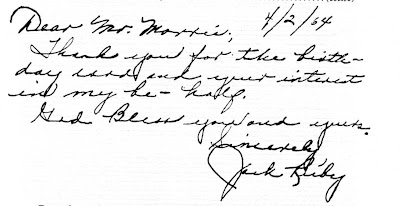 Dear Mr. Morris, 4/2/64
Thank you for the birth-
day card and your interest
in my be-half.
God Bless you and yours.
Sincerely
Jack Ruby